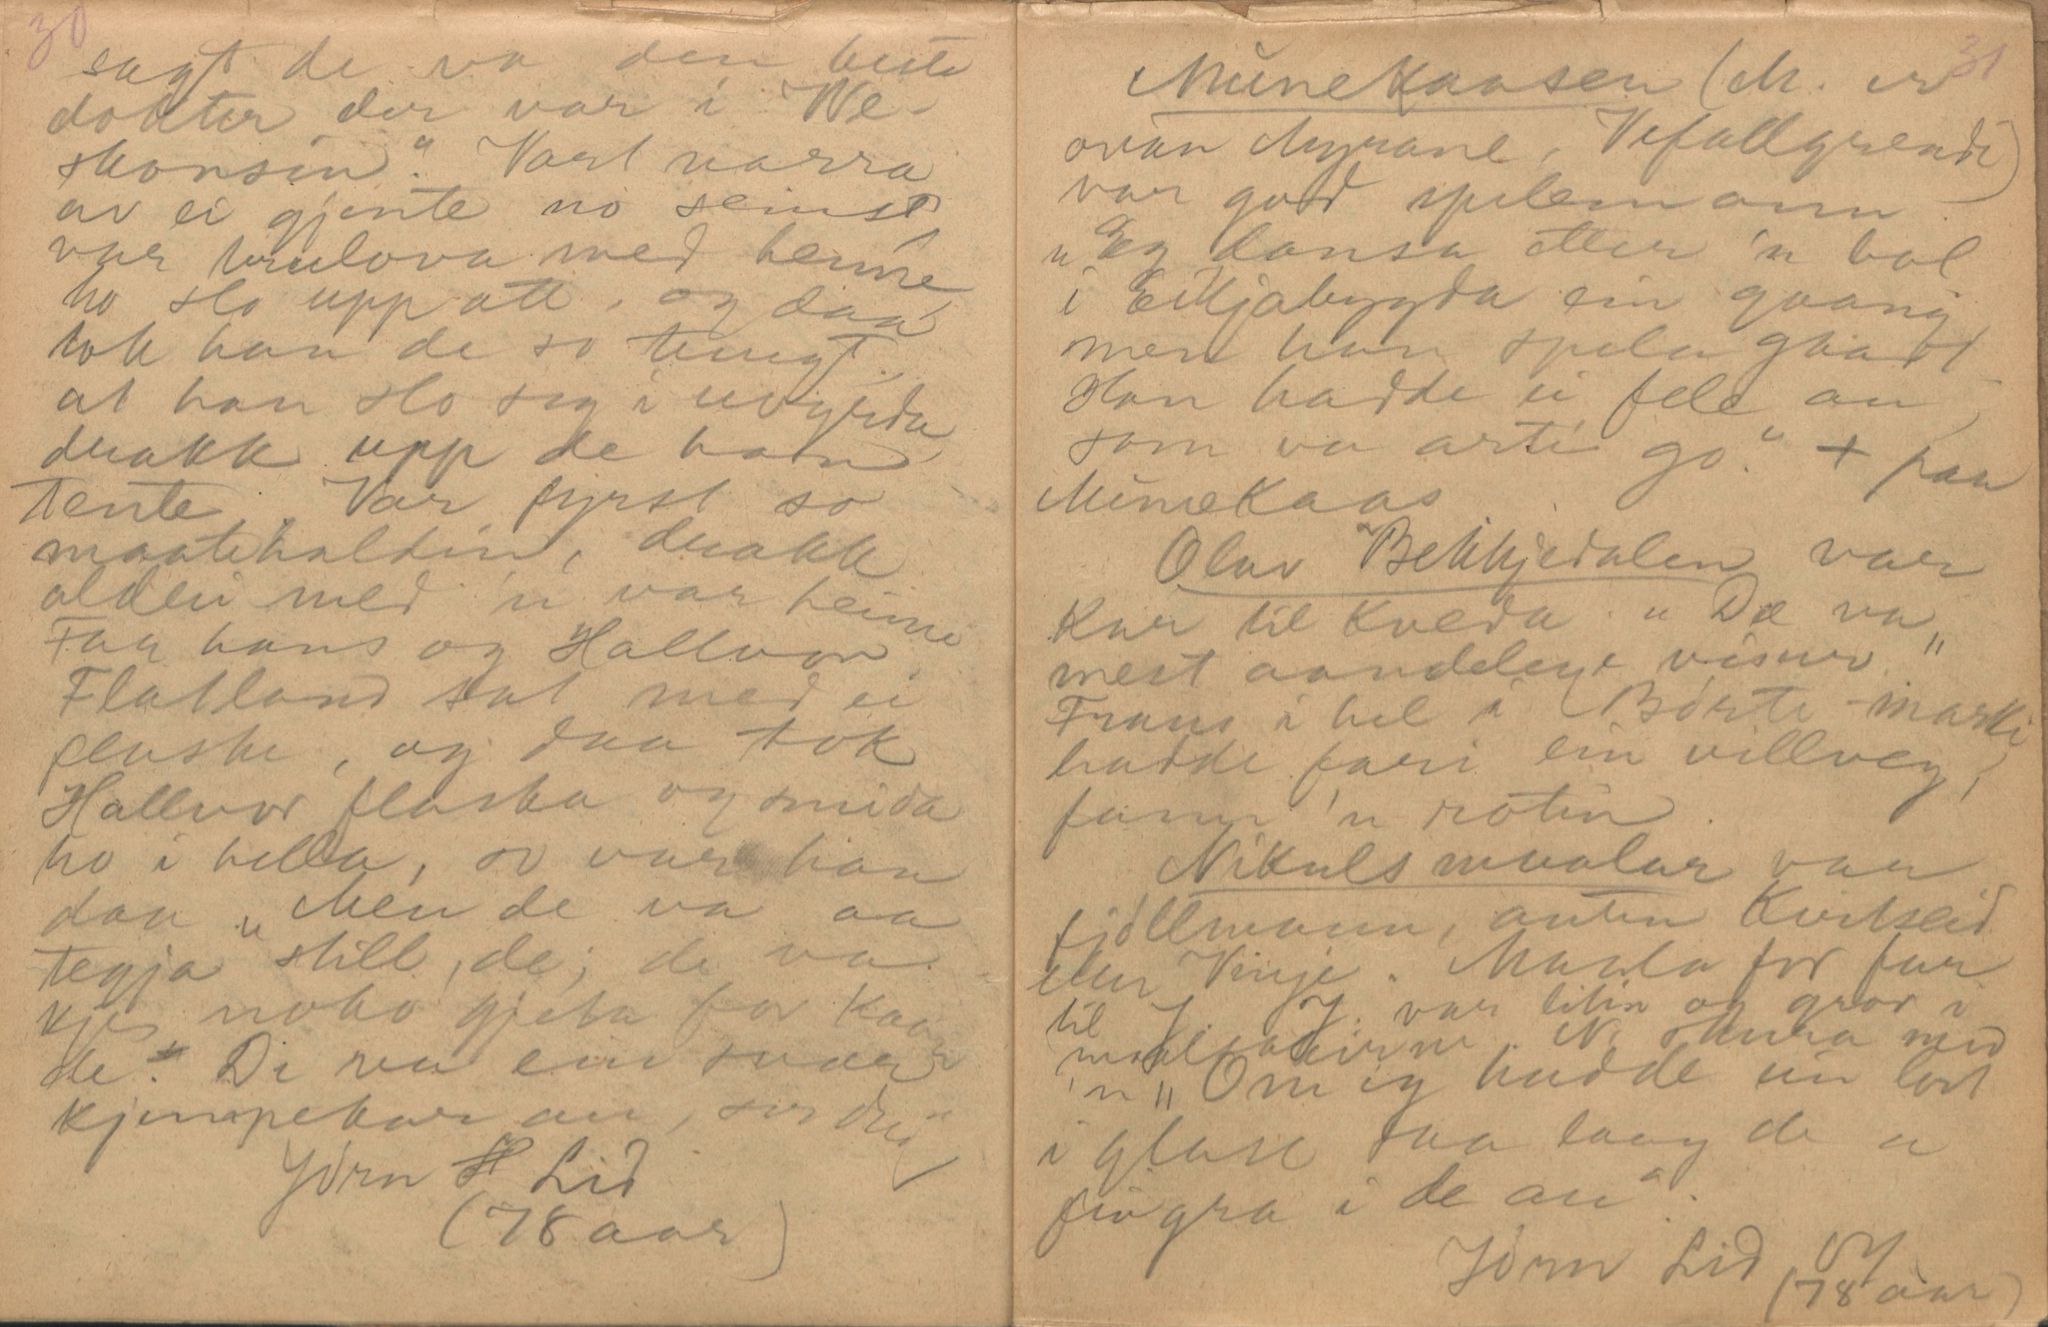 30
sagt de va den beste
dokter der var i We-
skonsin." Vart narra
av ei gjente no seinst
var trulova med henne,
ho slo upp att, og daa
tok han de so tungt,
at han slo seg i uvyrda,
drakk upp de han
tente. Var fyrst so
maatehaldin, drakk
alder med 'n var heime
Far hans og Hallvor
Flatland sat med ei
flaske, og daa tok
Hallvor flaska og smida
ho i hella, so var han
daa "Men de va aa
tegja still, de; de va
kje noko gjeta for kaar
de." De va ein svær
kjempekar an, ser du
Jørn Lid
(78 aar)
31
Minekaasen (M. er
ovan Myrane, Vefallgrendi)
var god spelemann
"Eg dansa etter 'n bal
i Eikjabygda ein gaang
men han spela ghadt
Han hadde ei fele an,
som va arti go." + paa
Minekaas
Olav Bekkjedalen var
kar til kveda. "Dæ va
mest aandelege viser"
Fraus i hel i Børte-marki
hadde fari ein villveg,
fann 'n rotin.
Nikuls maalar var
fjøllmann, anten Kvitseid
eller Vinje. Maala for far
til J. J. var litin og grov i
maalsakerne. N. skjena med
'n "Om eg hadde ein lort
i glase daa laag de a
fingra i de an".
Jørn Lid
(78 aar)